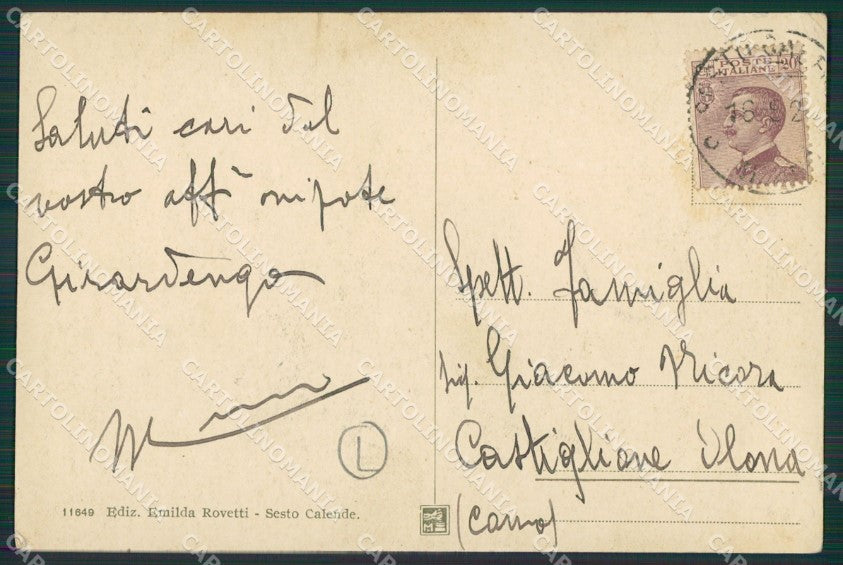 Saluti cari dal
vostro aff. nipote
Girardengo
L
11649 Ediz. Emilda Rovetti - Sesto Calende.
POSTE 20
ITALIANE
Spett. Famiglia
Sig. Giacomo
Castiglione Olona
CARTOLINOMANIA